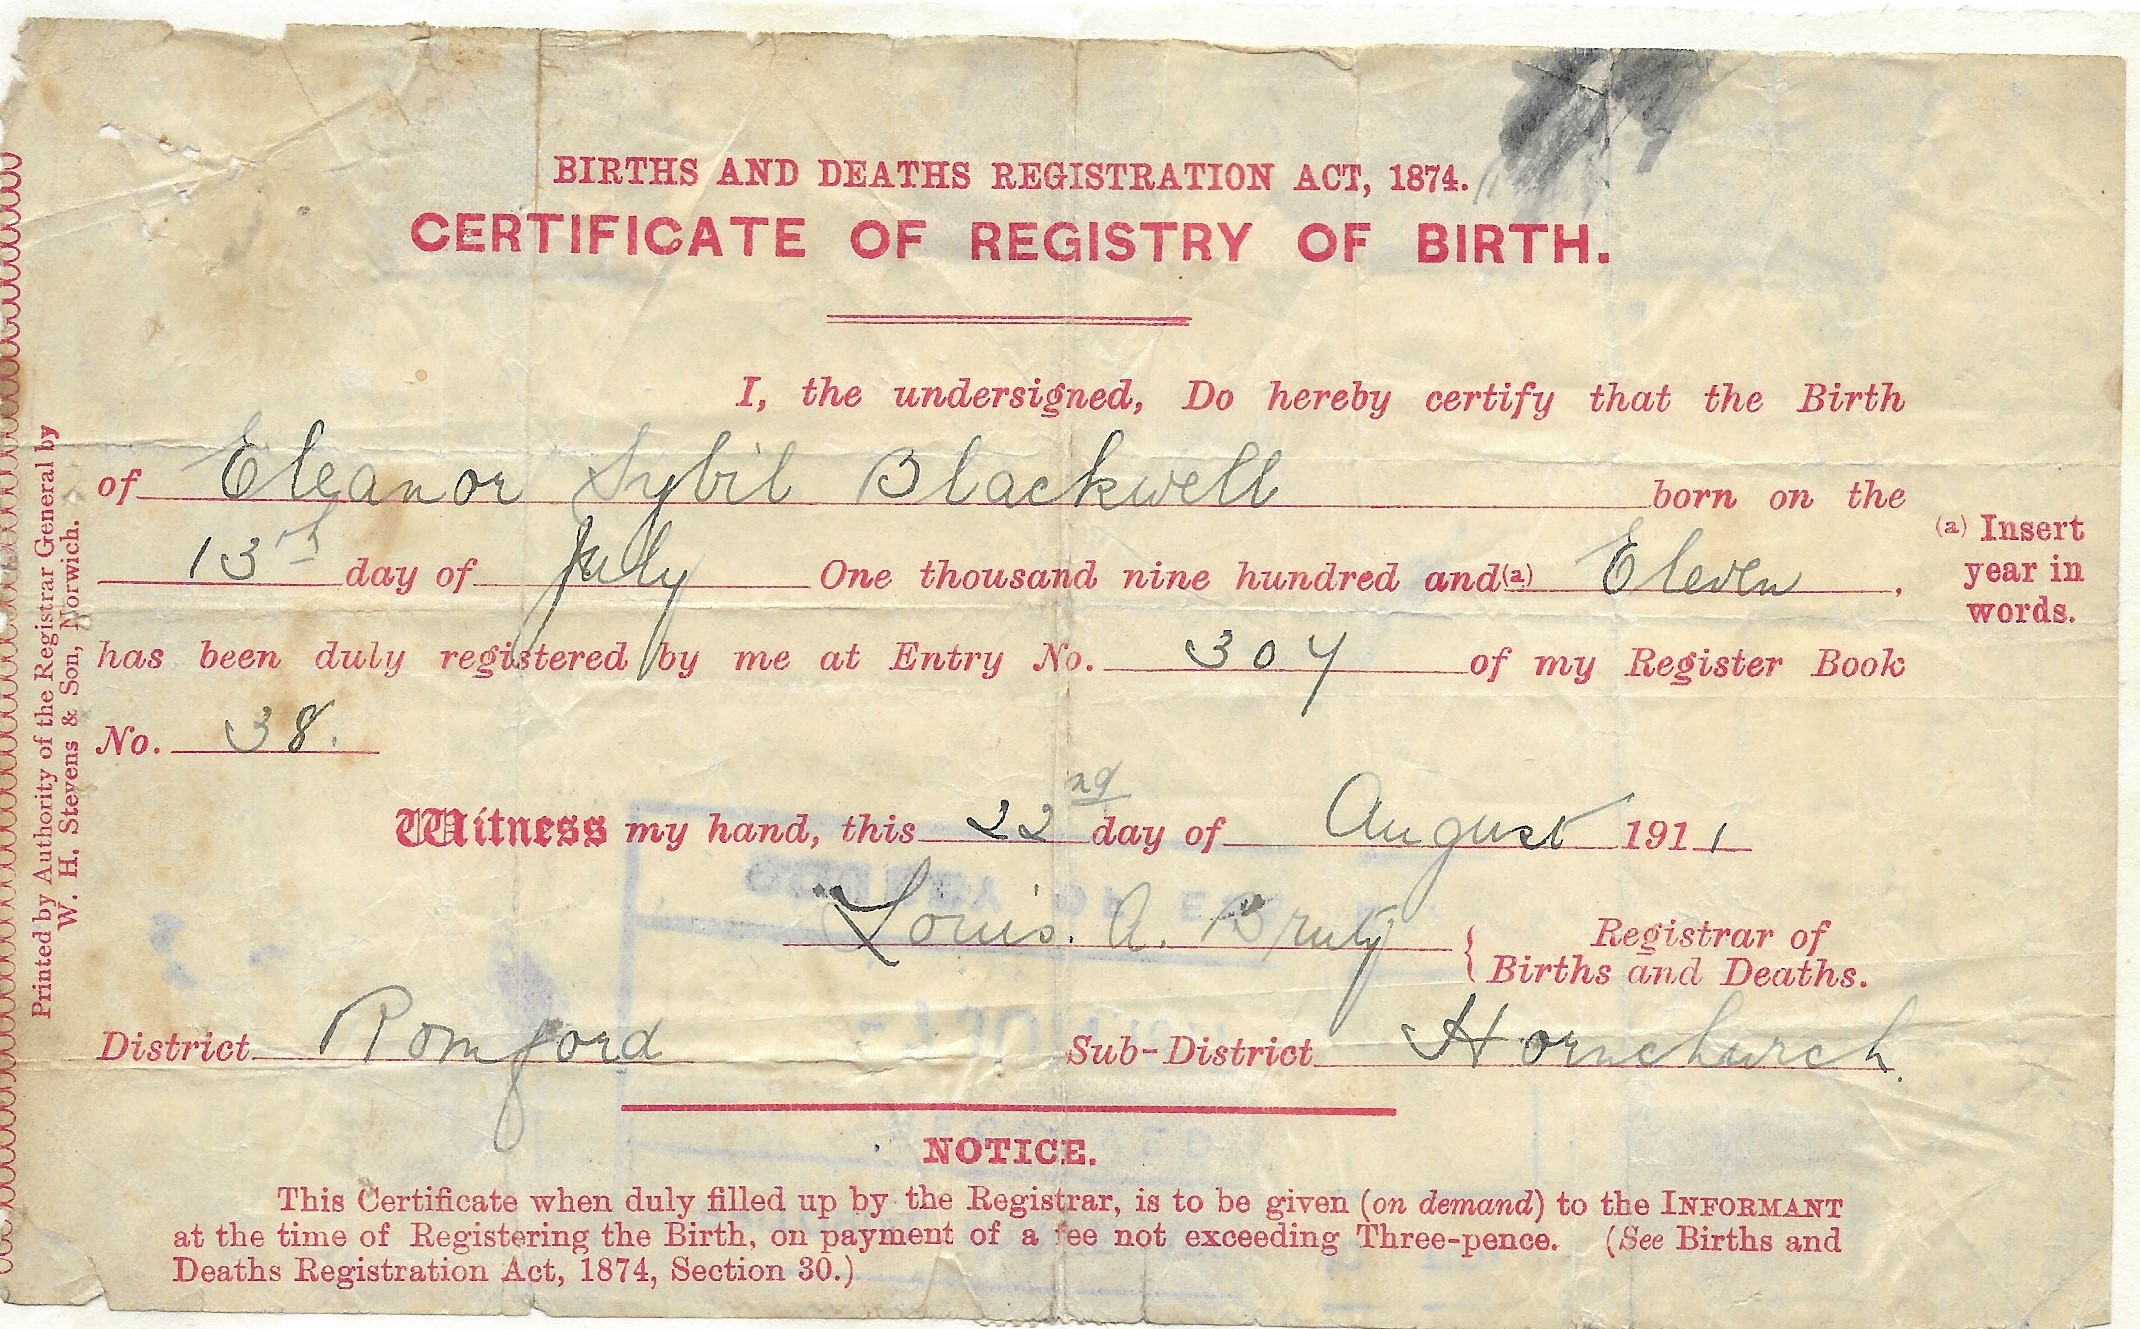 BIRTHS AND DEATHS REGISTRATION ACT, 1874.
CERTIFICATE OF REGISTRY OF BIRTH.
I, the undersigned, Do hereby certify that the Birth
of Eleanor Sybil Blackwell born on the
13th day of July One thousand nine hundred and (a) Eleven,
(a) Insert
year in
words.
has been duly registered by me at Entry No. 304 of my Register Book
No. 38.
Witness my hand, this 22nd day of August 1911
Louis. A. Bruty { Registrar of
Births and Deaths.
District Romford Sub-District Hornchurch.
NOTICE.
This Certificate when duly filled up by the Registrar, is to be given (on demand) to the INFORMANT
at the time of Registering the Birth, on payment of a fee not exceeding Three-pence. (See Births and
Deaths Registration Act, 1874, Section 30.)
Printed by Authority of the Registrar General by
W. H. Stevens & Son, Norwich.